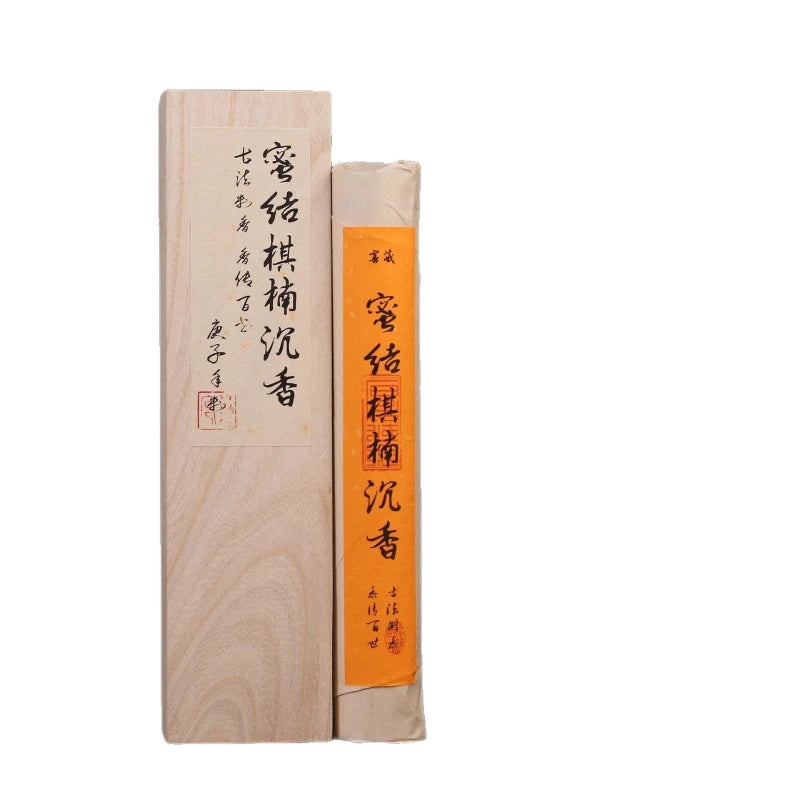 蜜结棋楠沉香
古法制香 香传百世
庚子年制
窖藏
蜜结棋楠沉香
古法制香
香传百世